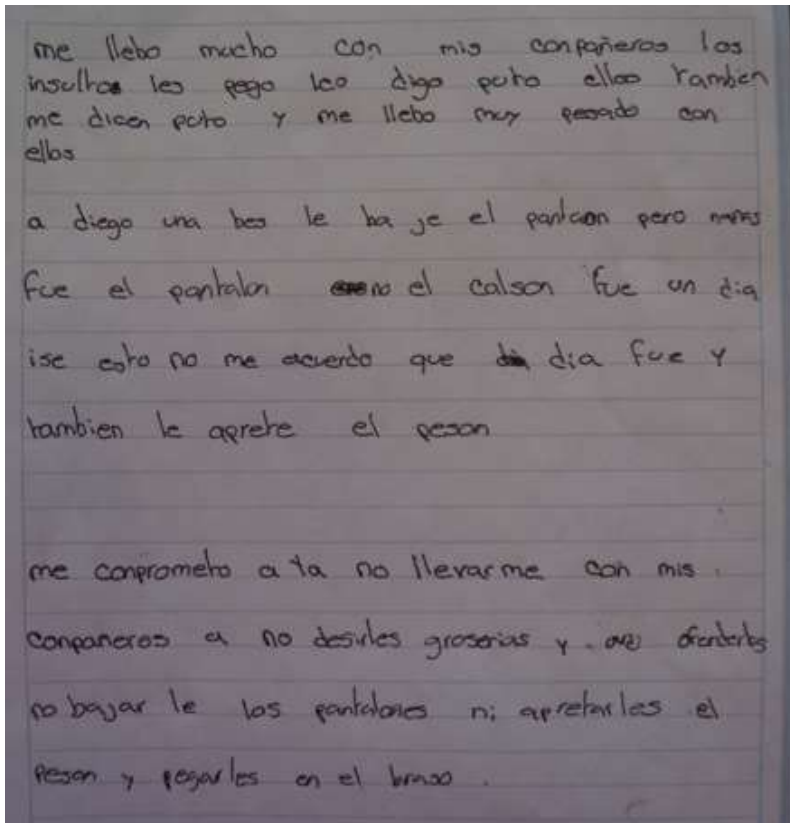 me llebo mucho con mis conpañeros los
insultos les pego les digo puto ellos tambien
me dicen puto y me llebo muy pesado con
ellos
a diego una bes le ba je el pantalon pero
fue el pantalon no el calson fue un dia
ise esto no me acuerdo que dia fue y
tambien le aprete el peson
me conprometo a ya no llevarme con mis
conpaneros a no desirles groserias y ofenderlos
no bajar le los pantalones ni apretarles el
peson y pegarles en el braso.